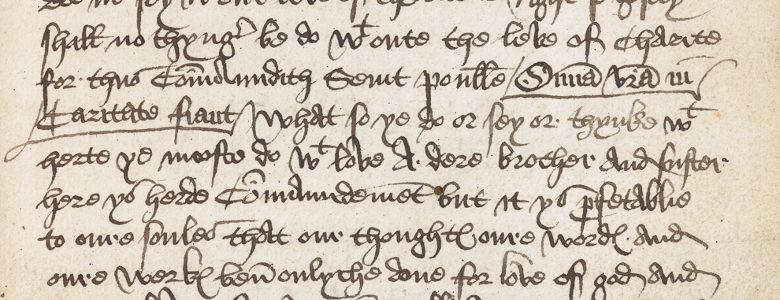 shall no thyng be do wt oute the leve of Charite
for thus Cōmaundith Seint poulle / Omīa vrā in
Caritate fiant / What so ye do or sey or thynke wt
herte ye moste do wt love A dere brother and suster
here ys herde Cōmaundemēt but it ys pfetablie
to oure soules that our thought oure word and
oure werk ben onlythe done for love of god and